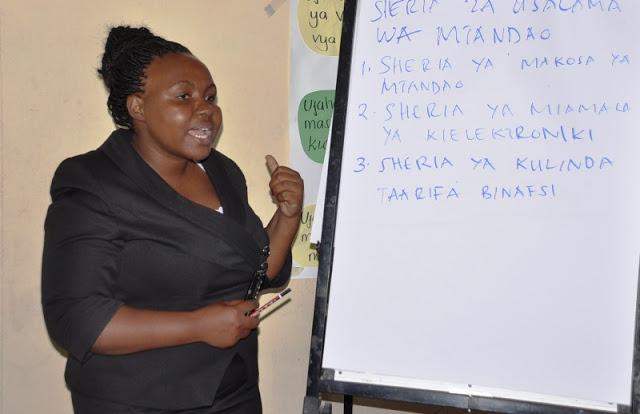 SHERIA ZA USALAMA
WA MTANDAO
1. SHERIA YA MAKOSA YA
MTANDAO
2. SHERIA YA MIAMALA
YA KIELEKTRONIKI
3. SHERIA YA KULINDA
TAARIFA BINAFSI
ya v
vya
Ujah
mas
ku